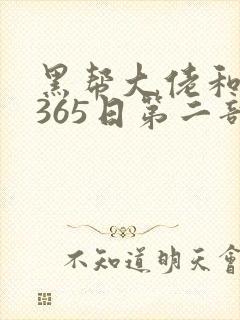 黑帮大佬和
365日第二部
不知道明天会